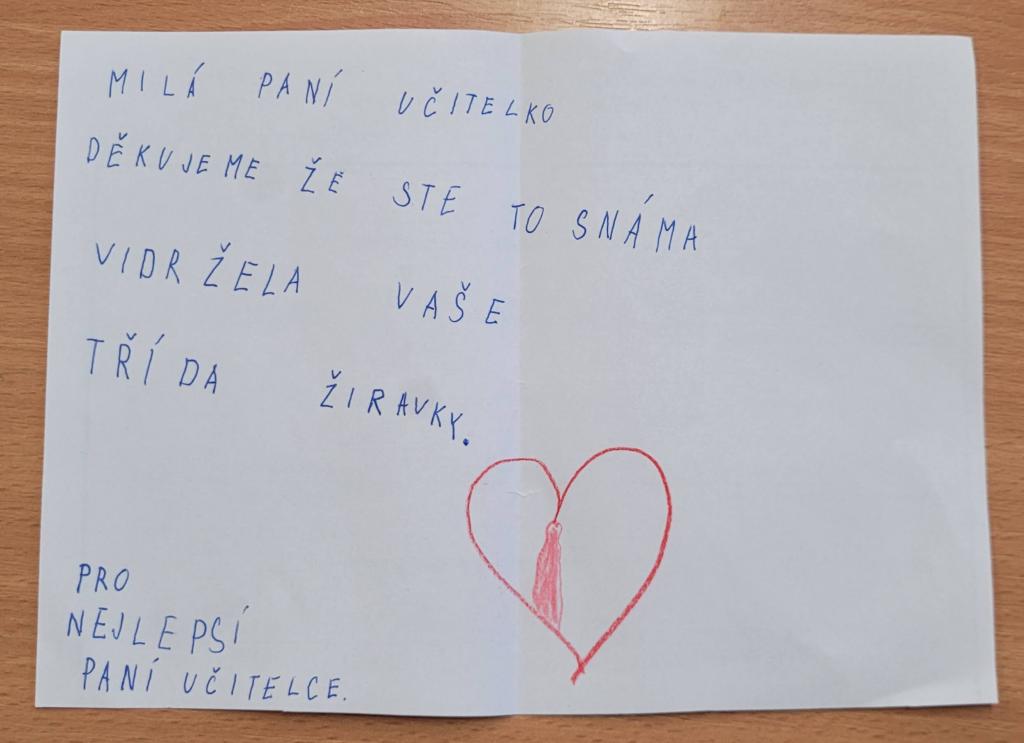 MILÁ PANÍ UČITELKO
DĚKUJEME ŽE STE TO SNÁMA
VIDRŽELA VAŠE
TŘÍDA ŽIRAVKY.
PRO
NEJLEPSÍ
PANÍ UČITELCE.